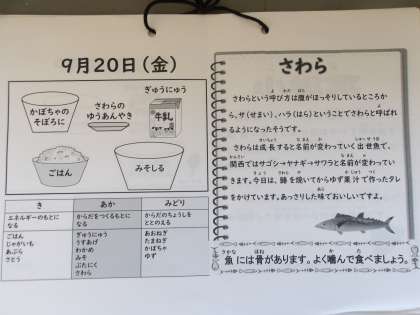 ９月２０日（金）
ぎゅうにゅう
かぼちゃの
そぼろに
さわらの
ゆうあんやき
牛乳
ごはん
みそしる
き
あか
みどり
エネルギーのもとに
なる
からだをつくるもとに
なる
からだのちょうしを
ととのえる
ごはん
じゃがいも
あぶら
さとう
ぎゅうにゅう
うすあげ
わかめ
みそ
ぶたにく
さわら
あおねぎ
たまねぎ
かぼちゃ
ゆず
さわら
さわらという呼び方は腹がほっそりしているところか
ら、サ（せまい）、ハラ（はら）ということでさわらと呼ばれ
るようになったそうです。
さわらは成長すると名前が変わっていく出世魚で、
関西ではサゴシ→ヤナギ→サワラと名前が変わってい
きます。今日は、鰆を焼いてからゆず果汁で作ったタレ
をかけています。あっさりした味でおいしいですよ。
魚には骨があります。よく噛んで食べましょう。